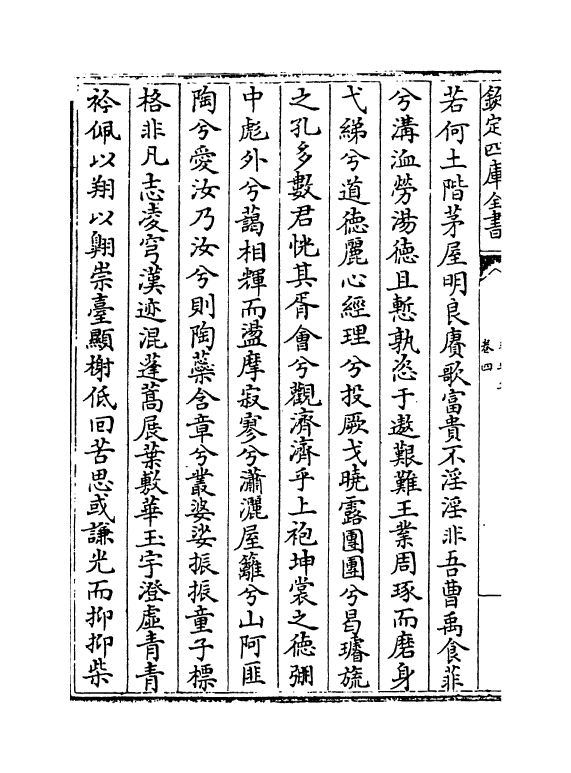 欽定四庫全書
卷四
若何土階茅屋明良賡歌富貴不淫淫非吾曹禹食菲
兮溝洫勞湯德且慙孰恣于遨艱難王業周琢而磨身
弋綈兮道德麗心經理兮投厥戈曉露團團兮曷璿旒
之孔多數君恍其胥會兮觀濟濟乎上袍坤裳之德弸
中彪外兮藹相輝而盪摩寂寥兮瀟灑屋籬兮山阿匪
陶兮愛汝乃汝兮則陶蘂含章兮叢婆娑振振童子標
格非凡志凌穹漢迹混蓬蒿展葉敷華玉宇澄虛青青
衿佩以翔以翺崇臺顯榭低回苦思或謙光而抑抑柴